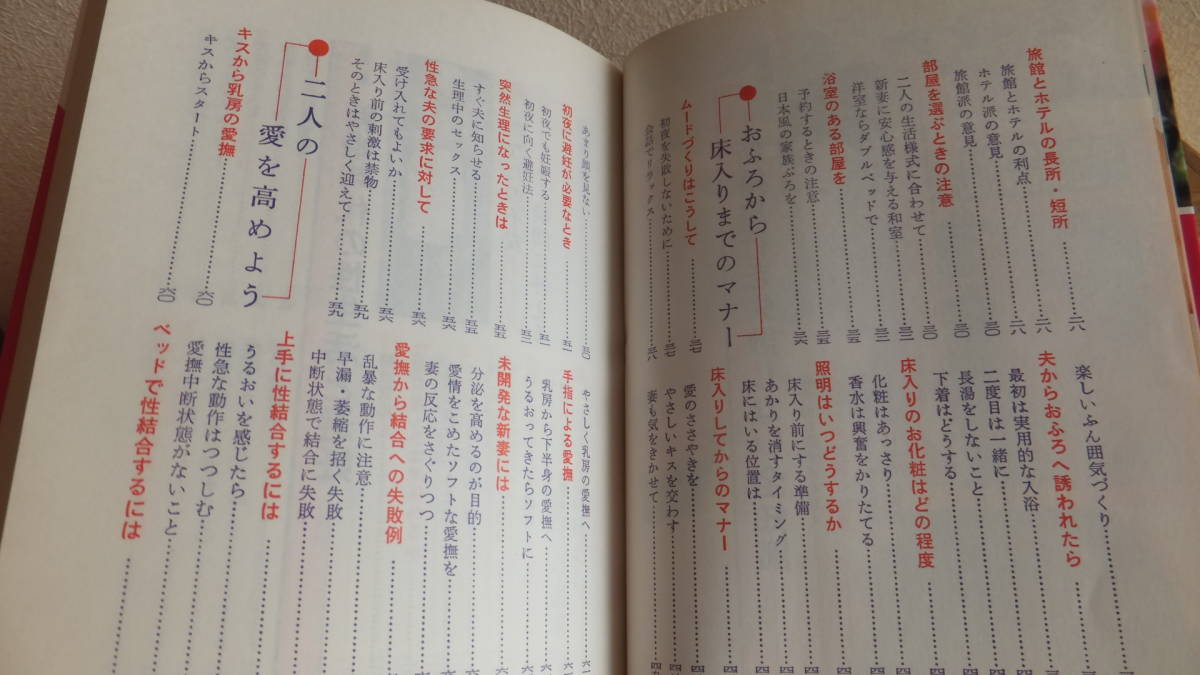 旅館とホテルの長所・短所……二八
旅館とホテルの利点……二八
ホテル派の意見……二八
旅館派の意見……三〇
部屋を選ぶときの注意……三〇
二人の生活様式に合わせて……三一
新妻に安心感を与える和室……三二
洋室ならダブルベッドで……
浴室のある部屋を……三五
予約するときの注意……三五
日本風の家族ぶろを……三六
おふろから
床入りまでのマナー
ムードづくりはこうして……三七
初夜を失敗しないために……三七
会話でリラックス……三八
楽しいふん囲気づくり……
夫からおふろへ誘われたら……
最初は実用的な入浴……
二度目は一緒に……
長湯をしないこと……
下着はどうする……
床入りのお化粧はどの程度……
化粧はあっさり……
香水は興奮をかりたてる……
照明はいつどうするか……
床入り前にする準備……
あかりを消すタイミング……
床にはいる位置は……
床入りしてからのマナー……
愛のささやきを……
やさしいキスを交わす……
妻も気をきかせて……
あまり間を見ない……五〇
初夜に避妊が必要なとき……五一
初夜でも妊娠する……五一
初夜に向く避妊法……五二
突然生理になったときは……五五
すぐ夫に知らせる……五五
生理中のセックス……五六
性急な夫の要求に対して……五六
受け入れてもよいか……五六
床入り前の刺激は禁物……五九
そのときはやさしく迎えて……五九
二人の
愛を高めよう
キスから乳房の愛撫……六〇
キスからスタート……六〇
やさしく乳房の愛撫へ……
手指による愛撫……
乳房から下半身の愛撫へ……
うるおってきたらソフトに……
未開発な新妻には……
分泌を高めるのが目的……
愛情をこめたソフトな愛撫を……
妻の反応をさぐりつつ……
愛撫から結合への失敗例……
乱暴な動作に注意……
早漏・萎縮を招く失敗……
中断状態で結合に失敗……
上手に性結合するには……
うるおいを感じたら……
性急な動作はつつしむ……
愛撫中断状態がないこと……
ベッドで性結合するには……